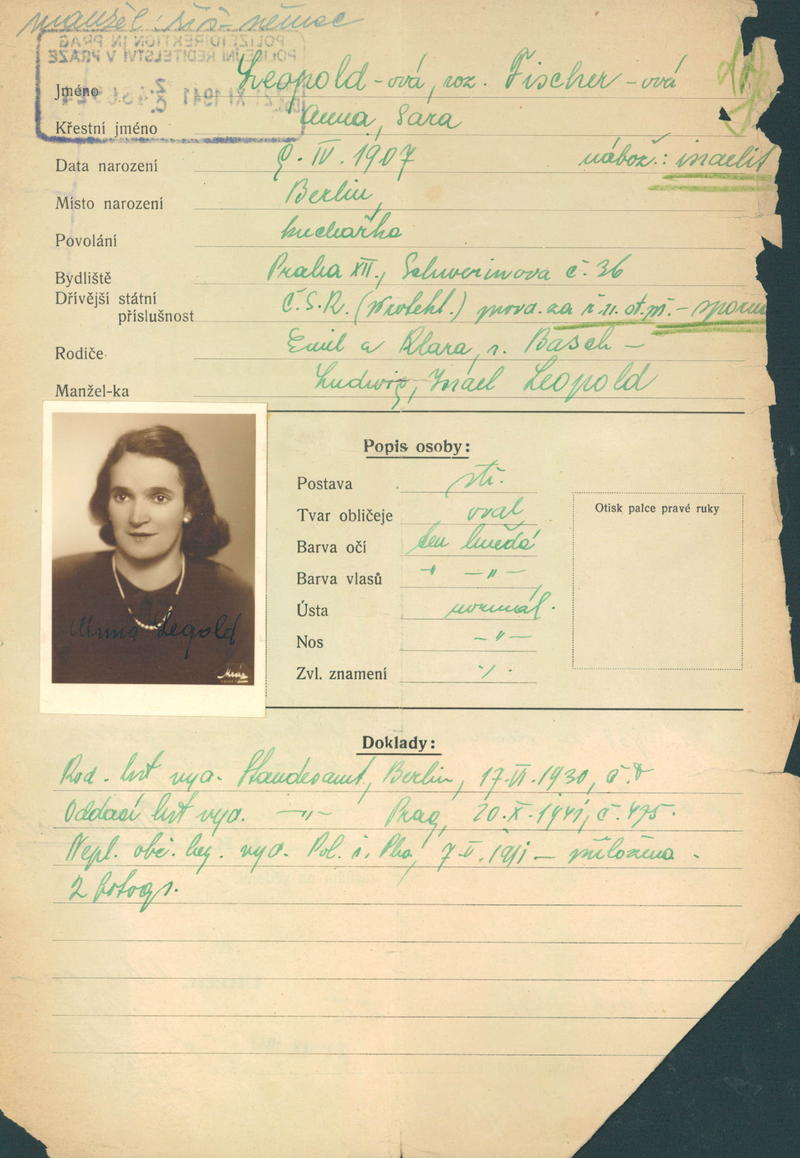 manžel: říš. němec
POLIZEIDIREKTION IN PRAG
POLICEJNÍ ŘEDITELSTVÍ V PRAZE
21 XI 1941
Jméno Leopold-ová, roz. Fischer-ová
Křestní jméno Anna, Sara
Data narození 9. IV. 1907 nábož.: israelit
Místo narození Berlin,
Povolání kuchařka
Bydliště Praha XII., Schwerinova č. 36
Dřívější státní Č.S.R. (Protekt.)
příslušnost
Rodiče Emil a Klara, r. Basch -
Manžel-ka Ludwig, Israel Leopold
Popis osoby:
Postava stř.
Tvar obličeje oval
Barva očí tm hnědá
Barva vlasů " - " -
Ústa normál.
Nos - " -
Zvl. znamení ./.
Otisk palce pravé ruky
Anna Leopold
Doklady:
Rod. list vyd. Standesamt, Berlin, 17.VI.1930, č.
Oddací list vyd. - " - Prag, 20.X.1941, č. 475.
Nepl. obč. leg. vyd. Pol. ř. Pha, - přiložena -
2 fotogr.